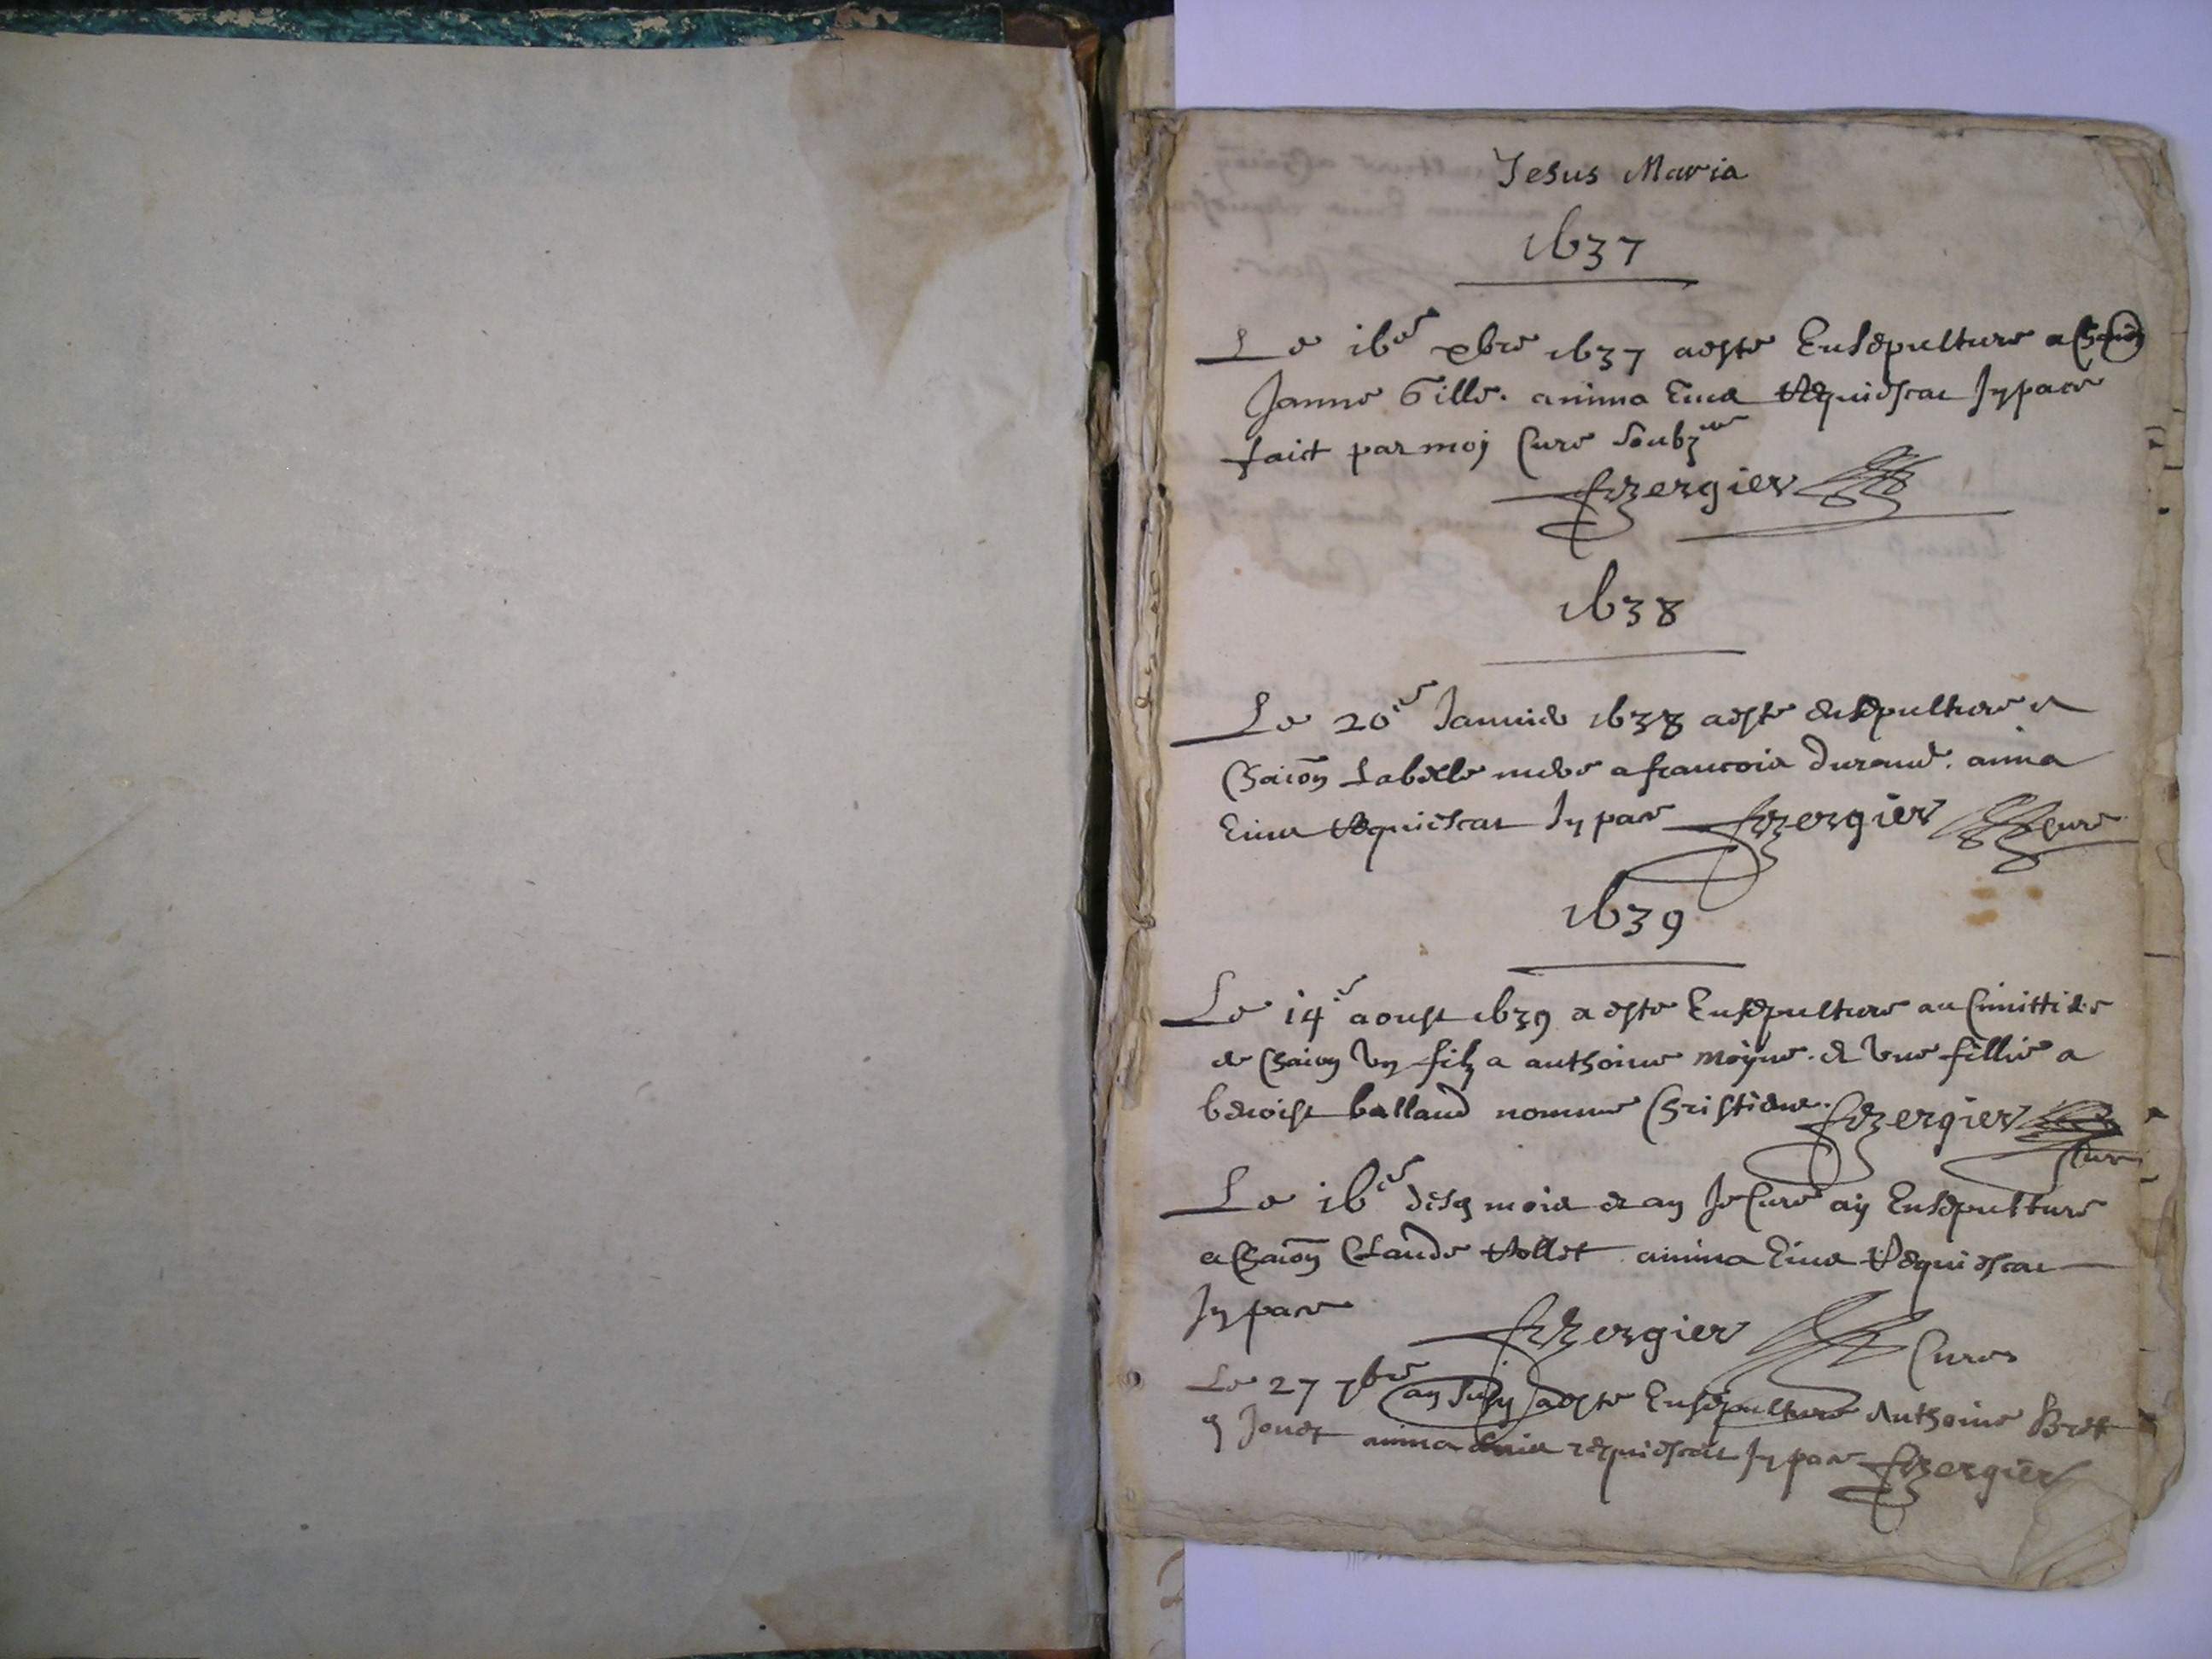 Jesus Maria
1637
Le 16e xbre 1637 a este Ensepulture a
Janne Gille. anima Eius Requiescat Jn pace
faict par moy Cure soubzne
Bergier
1638
Le 20e Januier 1638 a este ensepulture a
Chaion Labelle mere a francois durand. anima
Eius Requiescat Jn pace Bergier cure
1639
Le 14e aoust 1639 a este Ensepulture au Cimittiere
de Chaion Vn filz a anthoine moyne. et Vne fillie a
benoist balland nomme Christiene. Bergier
Cure
Le 16e desq mois et an Je Cure ay Ensepulture
a Chaion Claude Rollet anima Eius Requiescat
Jn pace
Bergier Cure
Le 27 7bre an susq a este Ensepulture Anthoine Bret
anima eius requiescat Jn pace Bergier